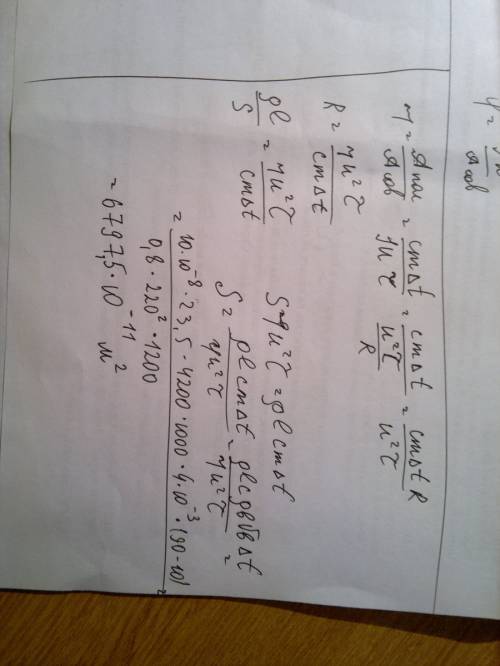 η = Aпол / Aсов = cmΔt / IUτ = cmΔt / (U²τ / R) = cmΔt R / U²τ
R = ηU²τ / cmΔt
ρl / S = ηU²τ / cmΔt
SηU²τ = ρlcmΔt
S = ρlcmΔt / ηU²τ = ρlcρвVвΔt / ηU²τ =
= 10·10⁻⁸ · 23,5 · 4200 · 1000 · 4·10⁻³ · (90-10) / 0,8 · 220² · 1200 =
= 6797,5 · 10⁻¹¹ м²